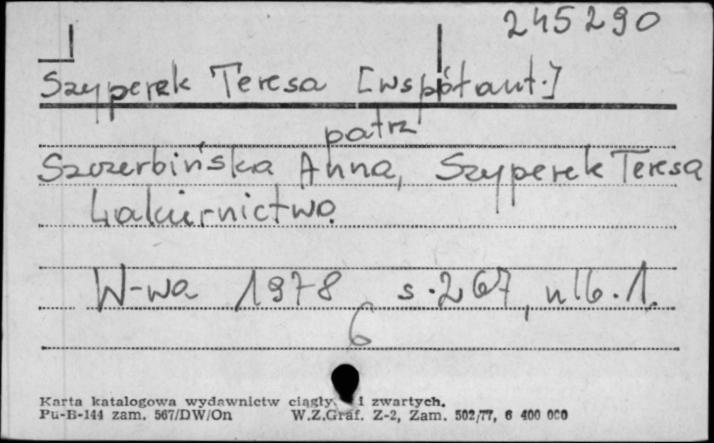 245290
Szyperek Teresa [współaut.]
patrz
Szczerbińska Anna, Szyperek Teresa
Lakiernictwo.
W-wa 1978 s. 267, nlb. 1.
6
Karta katalogowa wydawnictw ciągły i zwartych.
Pu-B-144 zam. 567/DW/On W.Z.Graf. Z-2, Zam. 502/77, 6 400 000